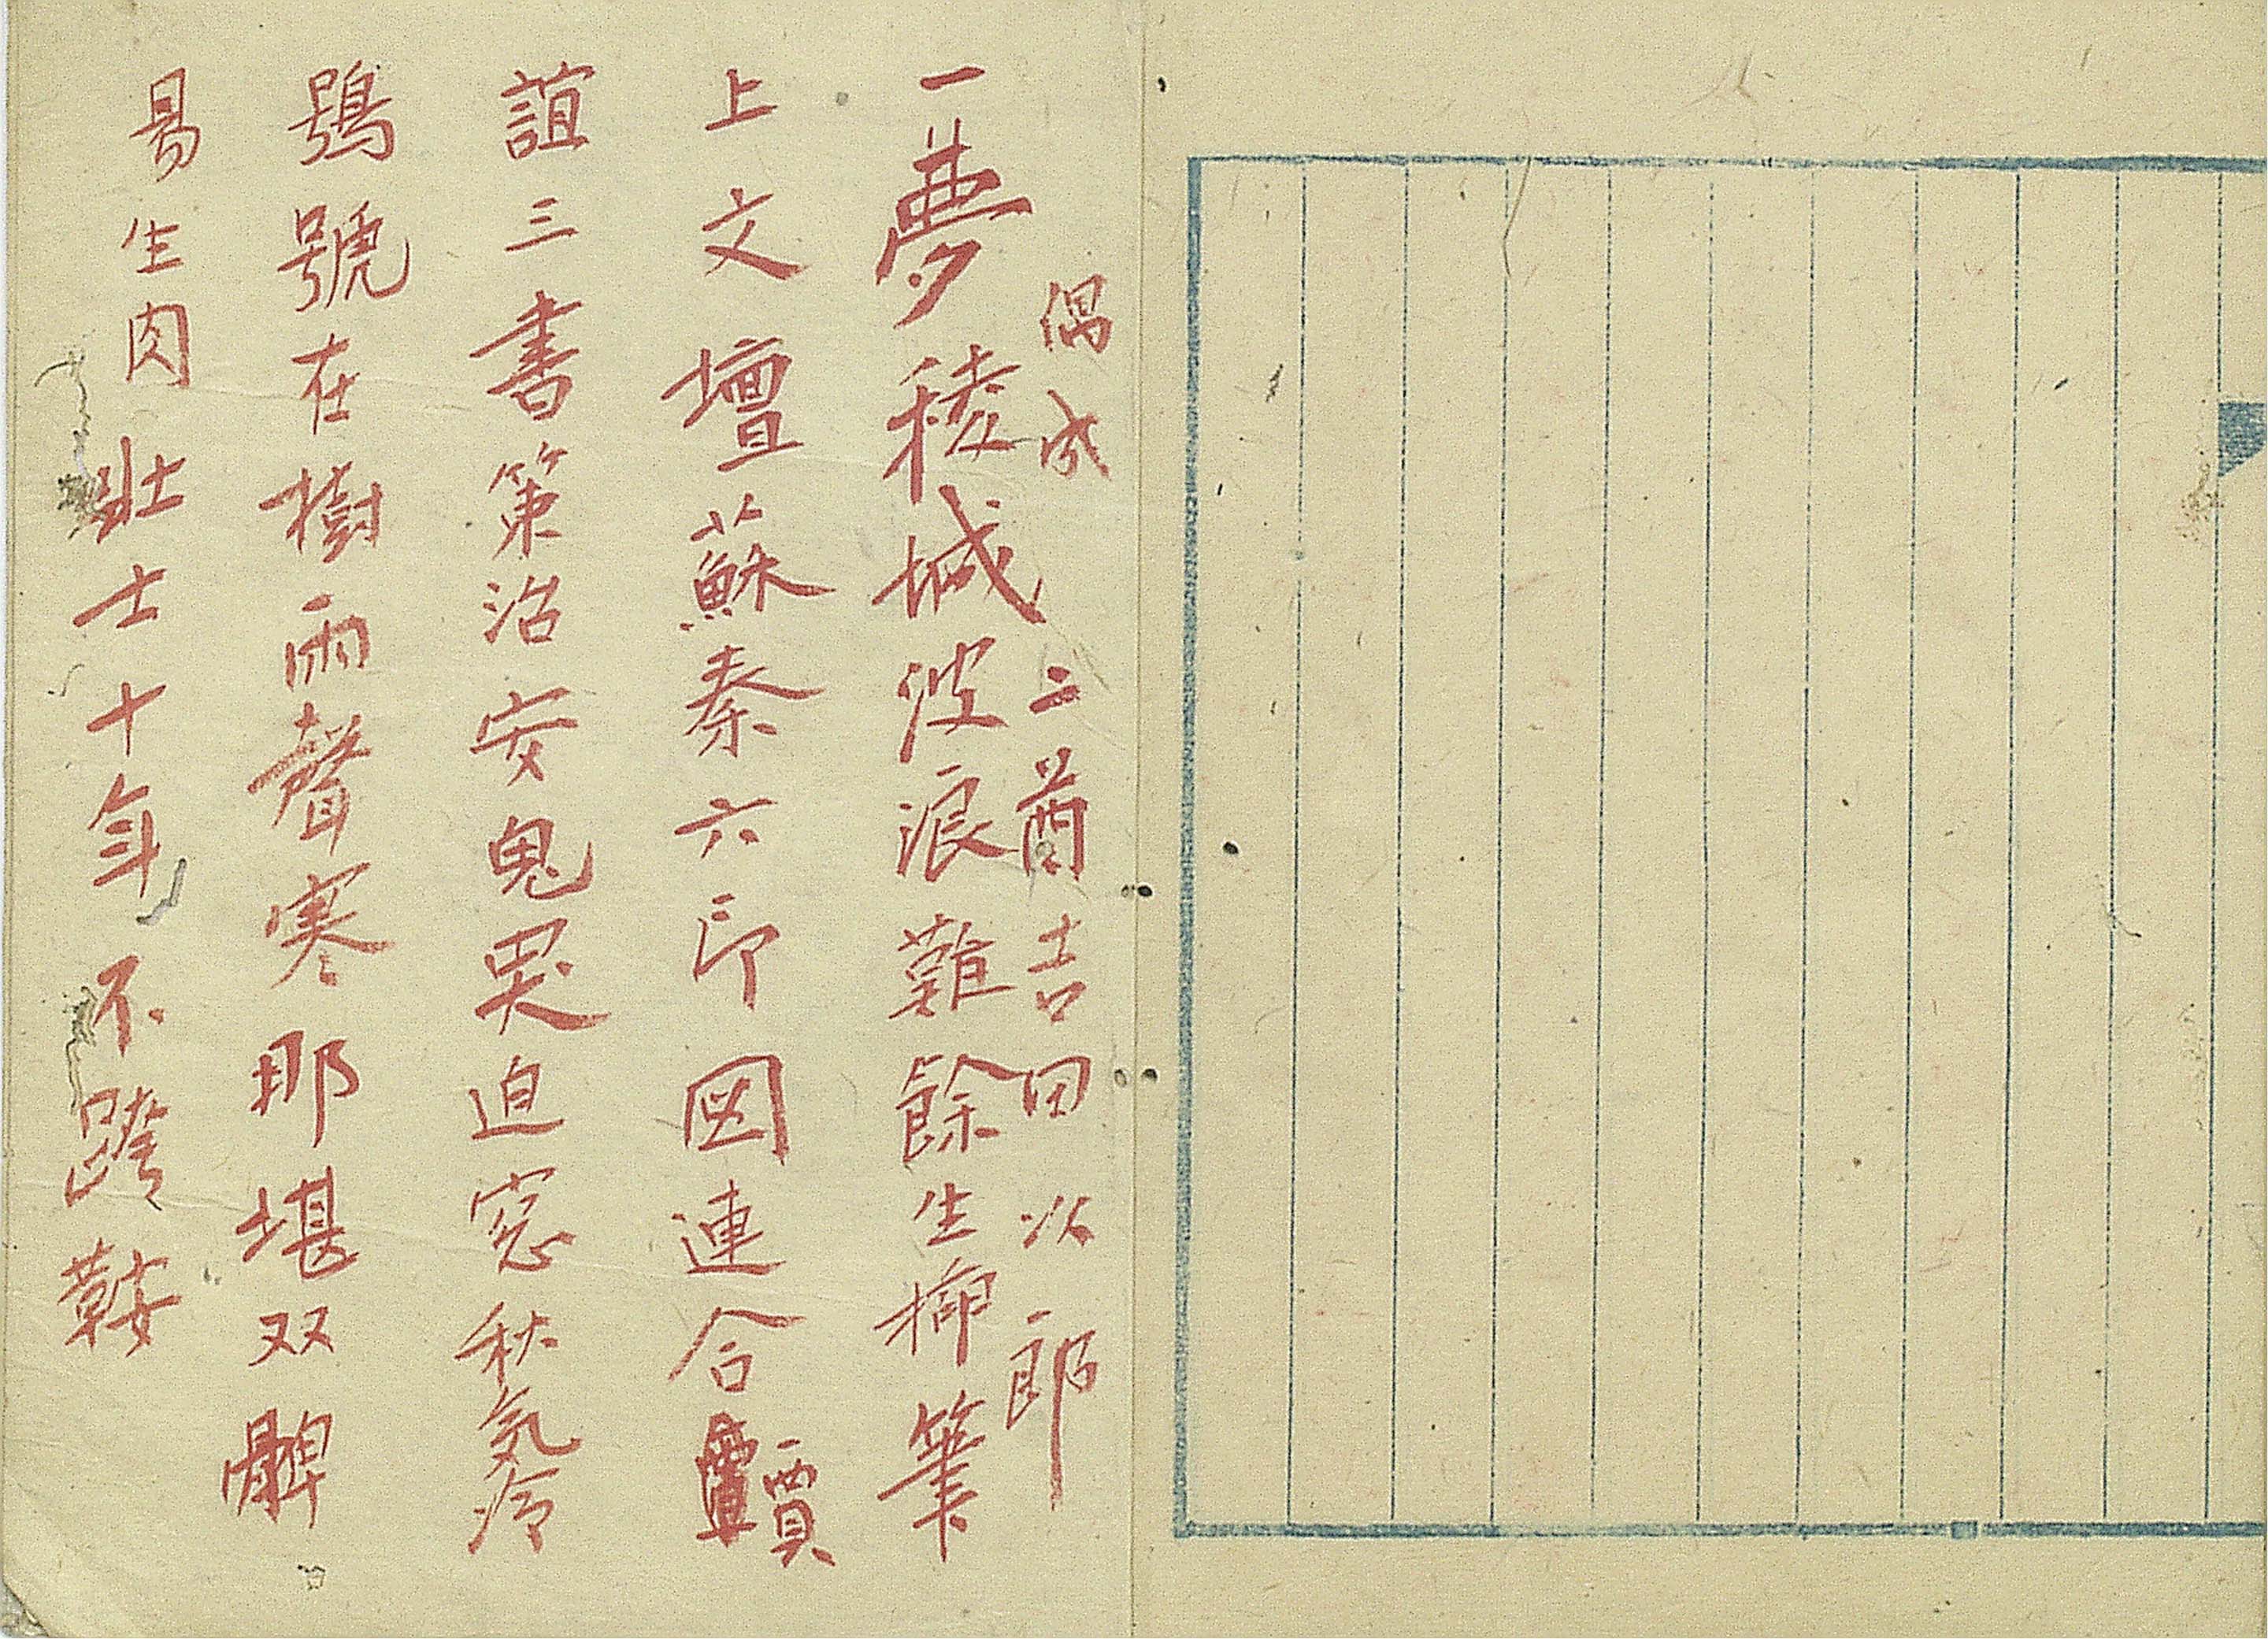 偶成 二首 吉田次郎
一夢稜城波浪難餘生揶筆
上文壇蘇秦六印図連合賈
誼三書策治安鬼哭迫窓秋気冷
鴞號在樹雨聲寒那堪双髀
易生肉壮士十年不跨鞍